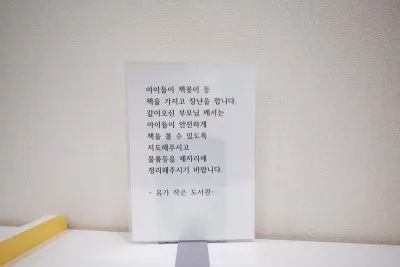 아이들이 책꽂이 등
책을 가지고 장난을 합니다.
같이오신 부모님 께서는
아이들이 안전하게
책을 볼 수 있도록
지도해주시고
물품등을 제자리에
정리해주시기 바랍니다.
- 유가 작은 도서관-